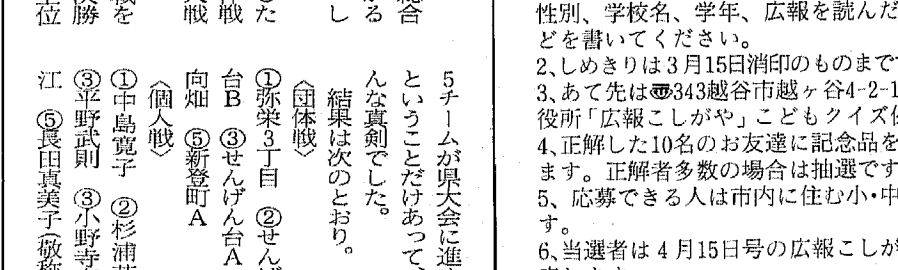 総合
かる
し
した
戦
戦
戦を
決勝
上位
5チームが県大会に進
ということだけあって、
んな真剣でした。
結果は次のとおり。
〈団体戦〉
①弥栄3丁目 ②せんげ
台B ③せんげん台A
向畑 ⑤新登町A
〈個人戦〉
①中島寛子 ②杉浦
③平野武則 ③小野寺
江 ⑤長田真美子(敬称
性別、学校名、学年、広報を読んだ
どを書いてください。
2、しめきりは3月15日消印のものまで
3、あて先は〠343越谷市越ヶ谷4-2-1
役所「広報こしがや」こどもクイズ
4、正解した10名のお友達に記念品を
ます。正解者多数の場合は抽選です
5、応募できる人は市内に住む小・中
す。
6、当選者は4月15日号の広報こしが